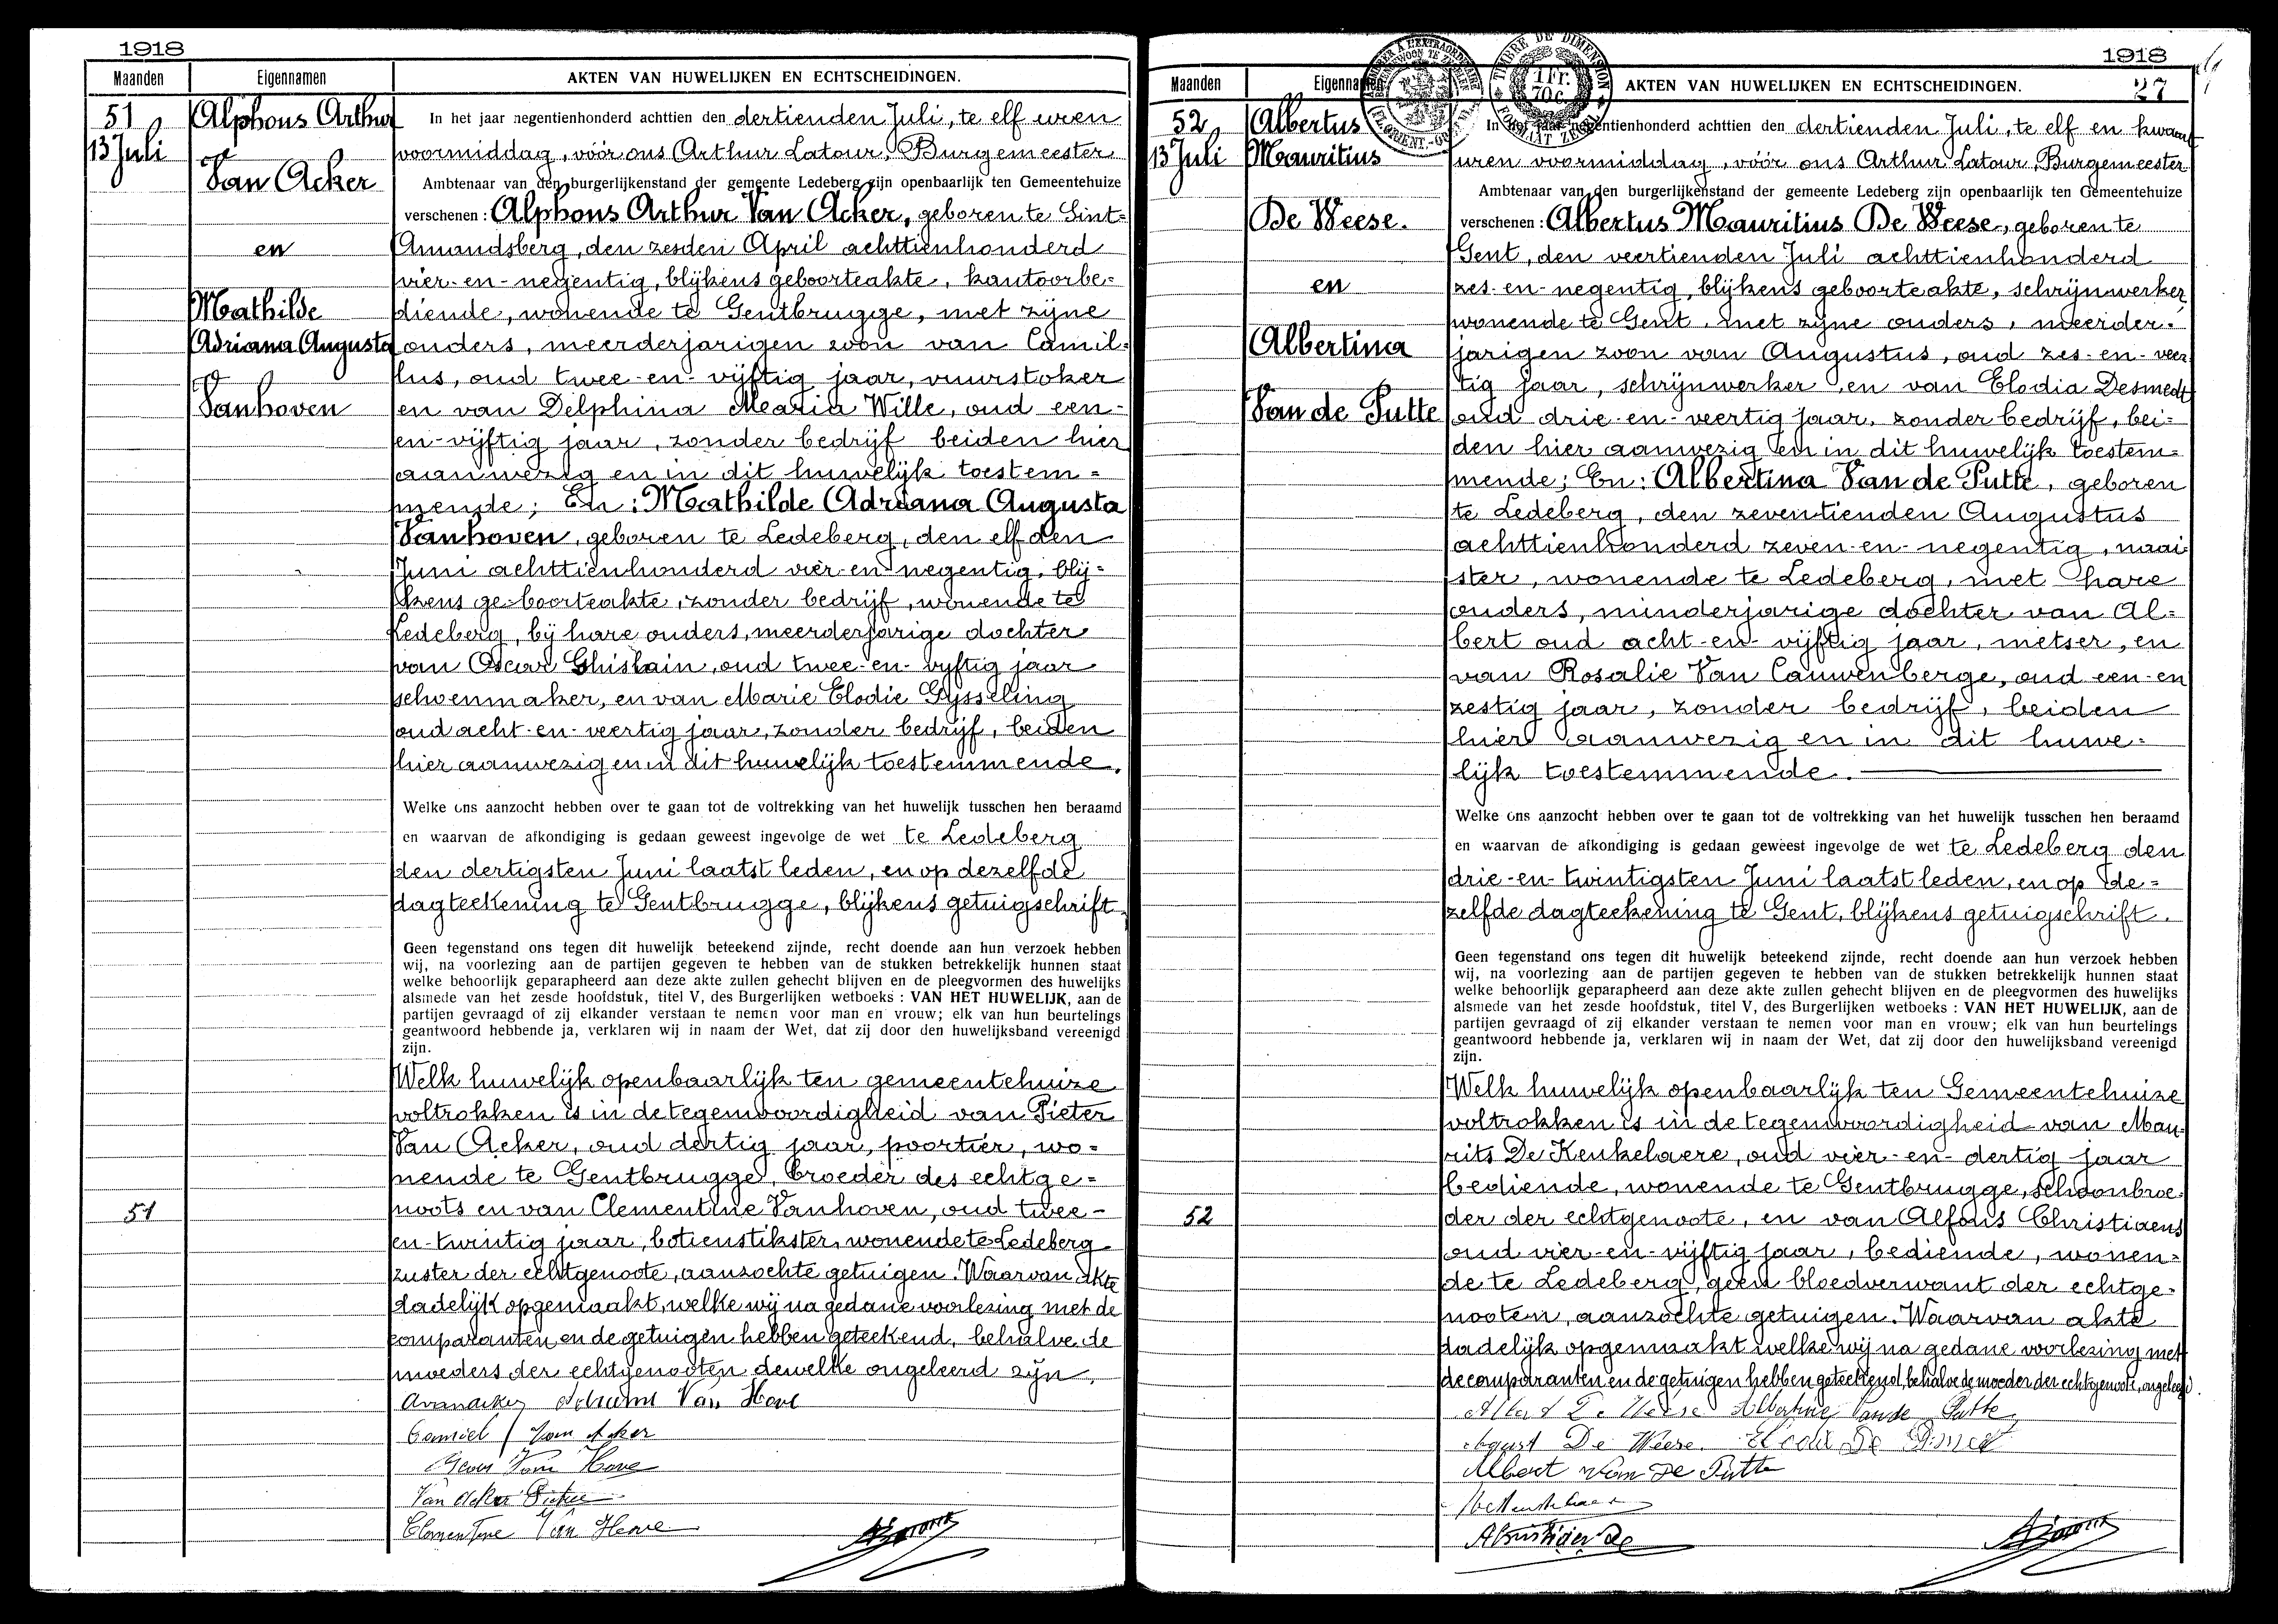 1918
Maanden
Eigennamen
AKTEN VAN HUWELIJKEN EN ECHTSCHEIDINGEN.
51
13 Juli
Alphons Arthur
Van Acker
en
Mathilde
Adriana Augusta
Vanhoven
In het jaar negentienhonderd achttien den dertienden Juli, te elf uren
voormiddag, vóór ons Arthur Latour, Burgemeester
Ambtenaar van den burgerlijkenstand der gemeente Ledeberg zijn openbaarlijk ten Gemeentehuize
verschenen : Alphons Arthur Van Acker, geboren te Sint-
Amandsberg, den zesden April achttienhonderd
vier-en-negentig, blijkens geboorteakte, kantoorbe-
diende, wonende te Gentbrugge, met zijne
ouders, meerderjarigen zoon van Camil-
lus, oud twee-en-vijftig jaar, vuurstoker
en van Delphina Maria Wille, oud een-
en-vijftig jaar, zonder bedrijf beiden hier
aanwezig en in dit huwelijk toestem=
mende; En : Mathilde Adriana Augusta
Vanhoven, geboren te Ledeberg, den elfden
Juni achttienhonderd vier-en negentig, blij-
kens geboorteakte, zonder bedrijf, wonende te
Ledeberg, bij hare ouders, meerderjarige dochter
van Oscar Ghislain, oud twee-en-vijftig jaar
schoenmaker, en van Marie Elodie Gijsseling
oud acht-en-veertig jaar, zonder bedrijf, beiden
hier aanwezig en in dit huwelijk toestemmende.
Welke ons aanzocht hebben over te gaan tot de voltrekking van het huwelijk tusschen hen beraamd
en waarvan de afkondiging is gedaan geweest ingevolge de wet te Ledeberg
den dertigsten Juni laatst leden, en op dezelfde
dagteekening te Gentbrugge, blijkens getuigschrift.
Geen tegenstand ons tegen dit huwelijk beteekend zijnde, recht doende aan hun verzoek hebben
wij, na voorlezing aan de partijen gegeven te hebben van de stukken betrekkelijk hunnen staat
welke behoorlijk geparapheerd aan deze akte zullen gehecht blijven en de pleegvormen des huwelijks
alsmede van het zesde hoofdstuk, titel V, des Burgerlijken wetboeks : VAN HET HUWELIJK, aan de
partijen gevraagd of zij elkander verstaan te nemen voor man en vrouw; elk van hun beurtelings
geantwoord hebbende ja, verklaren wij in naam der Wet, dat zij door den huwelijksband vereenigd
zijn.
Welk huwelijk openbaarlijk ten gemeentehuize
voltrokken is in de tegenwoordigheid van Pieter
Van Acker, oud dertig jaar, poortier, wo=
nende te Gentbrugge, broeder des echtge=
noots en van Clementine Vanhoven, oud twee-
51
en-twintig jaar, botienstikster, wonende te Ledeberg
zuster der echtgenoote, aanzochte getuigen. Waarvan akte
dadelijk opgemaakt, welke wij na gedane voorlezing met de
comparanten en de getuigen hebben geteekend, behalve de
moeders der echtgenooten dewelke ongeleerd zijn.
Van Hove
Camiel Van Acker
Van Hove
Van Acker
Clementine Van Hove
1918
27
Maanden
Eigennamen
AKTEN VAN HUWELIJKEN EN ECHTSCHEIDINGEN.
TIMBRE DE DIMENSION
1 Fr.
70 c.
FORMAAT ZEGEL
52
13 Juli
Albertus
Mauritius
De Weese.
en
Albertina
Van de Putte
In het jaar negentienhonderd achttien den dertienden Juli, te elf en kwaart
uren voormiddag, vóór ons Arthur Latour, Burgemeester
Ambtenaar van den burgerlijkenstand der gemeente Ledeberg zijn openbaarlijk ten Gemeentehuize
verschenen : Albertus Mauritius De Weese, geboren te
Gent, den veertienden Juli achttienhonderd
zes-en-negentig, blijkens geboorteakte, schrijnwerker
wonende te Gent, met zijne ouders, meerder-
jarigen zoon van Augustus, oud zes-en-veer
tig jaar, schrijnwerker en van Elodia Desmedt
oud drie-en-veertig jaar, zonder bedrijf, bei=
den hier aanwezig en in dit huwelijk toestem=
mende; En : Albertina Van de Putte, geboren
te Ledeberg, den zeventienden Augustus
achttienhonderd zeven-en-negentig, naai
ster, wonende te Ledeberg, met hare
ouders, minderjarige dochter van Al=
bert oud acht-en-vijftig jaar, metser, en
van Rosalie Van Cauwenberge, oud een-en
zestig jaar, zonder bedrijf, beiden
hier aanwezig en in dit huwe-
lijk toestemmende.
Welke ons aanzocht hebben over te gaan tot de voltrekking van het huwelijk tusschen hen beraamd
en waarvan de afkondiging is gedaan geweest ingevolge de wet te Ledeberg den
drie-en-twintigsten Juni laatst leden, en op de=
zelfde dagteekening te Gent, blijkens getuigschrift.
Geen tegenstand ons tegen dit huwelijk beteekend zijnde, recht doende aan hun verzoek hebben
wij, na voorlezing aan de partijen gegeven te hebben van de stukken betrekkelijk hunnen staat
welke behoorlijk geparapheerd aan deze akte zullen gehecht blijven en de pleegvormen des huwelijks
alsmede van het zesde hoofdstuk, titel V, des Burgerlijken wetboeks : VAN HET HUWELIJK, aan de
partijen gevraagd of zij elkander verstaan te nemen voor man en vrouw; elk van hun beurtelings
geantwoord hebbende ja, verklaren wij in naam der Wet, dat zij door den huwelijksband vereenigd
zijn.
Welk huwelijk openbaarlijk ten Gemeentehuize
voltrokken is in de tegenwoordigheid van Mau-
rits De Keukelaere, oud vier-en-dertig jaar
bediende, wonende te Gentbrugge, schoonbroe-
52
der der echtgenoote, en van Alfons Christiaens
oud vier-en-vijftig jaar, bediende, wonen=
de te Ledeberg, geen bloedverwant der echtge-
nooten, aanzochte getuigen. Waarvan akte
dadelijk opgemaakt welke wij na gedane voorlezing met
de comparanten en de getuigen hebben geteekend, behalve de moeder der echtgenoote, ongeleerd.
Albert De Weese Albertine Van de Putte
August De Weese
Albert Van De Putte